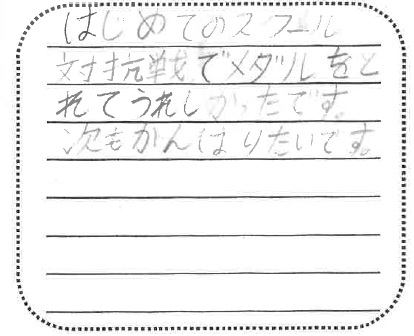 はじめてのスクール
対抗戦でメダルをと
れてうれしかったです。
次もがんばりたいです。